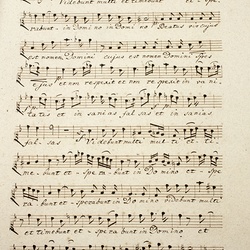 Videbunt multi et timebunt et - spe-
rabunt in Domino in Domino Beatus vir cujus
est nomen Domini cujus est nomen Domini spes
ejus et non respexit et non respexit in va ni
tates et in sanias falsas et in sanias
fal - sas Videbunt mul - ti et ti-
mebunt et - spe ra bunt in Do mino et - spe
ra bunt et - sperabunt in Do mino videbunt multi
et timebunt et spera bunt in Domino et